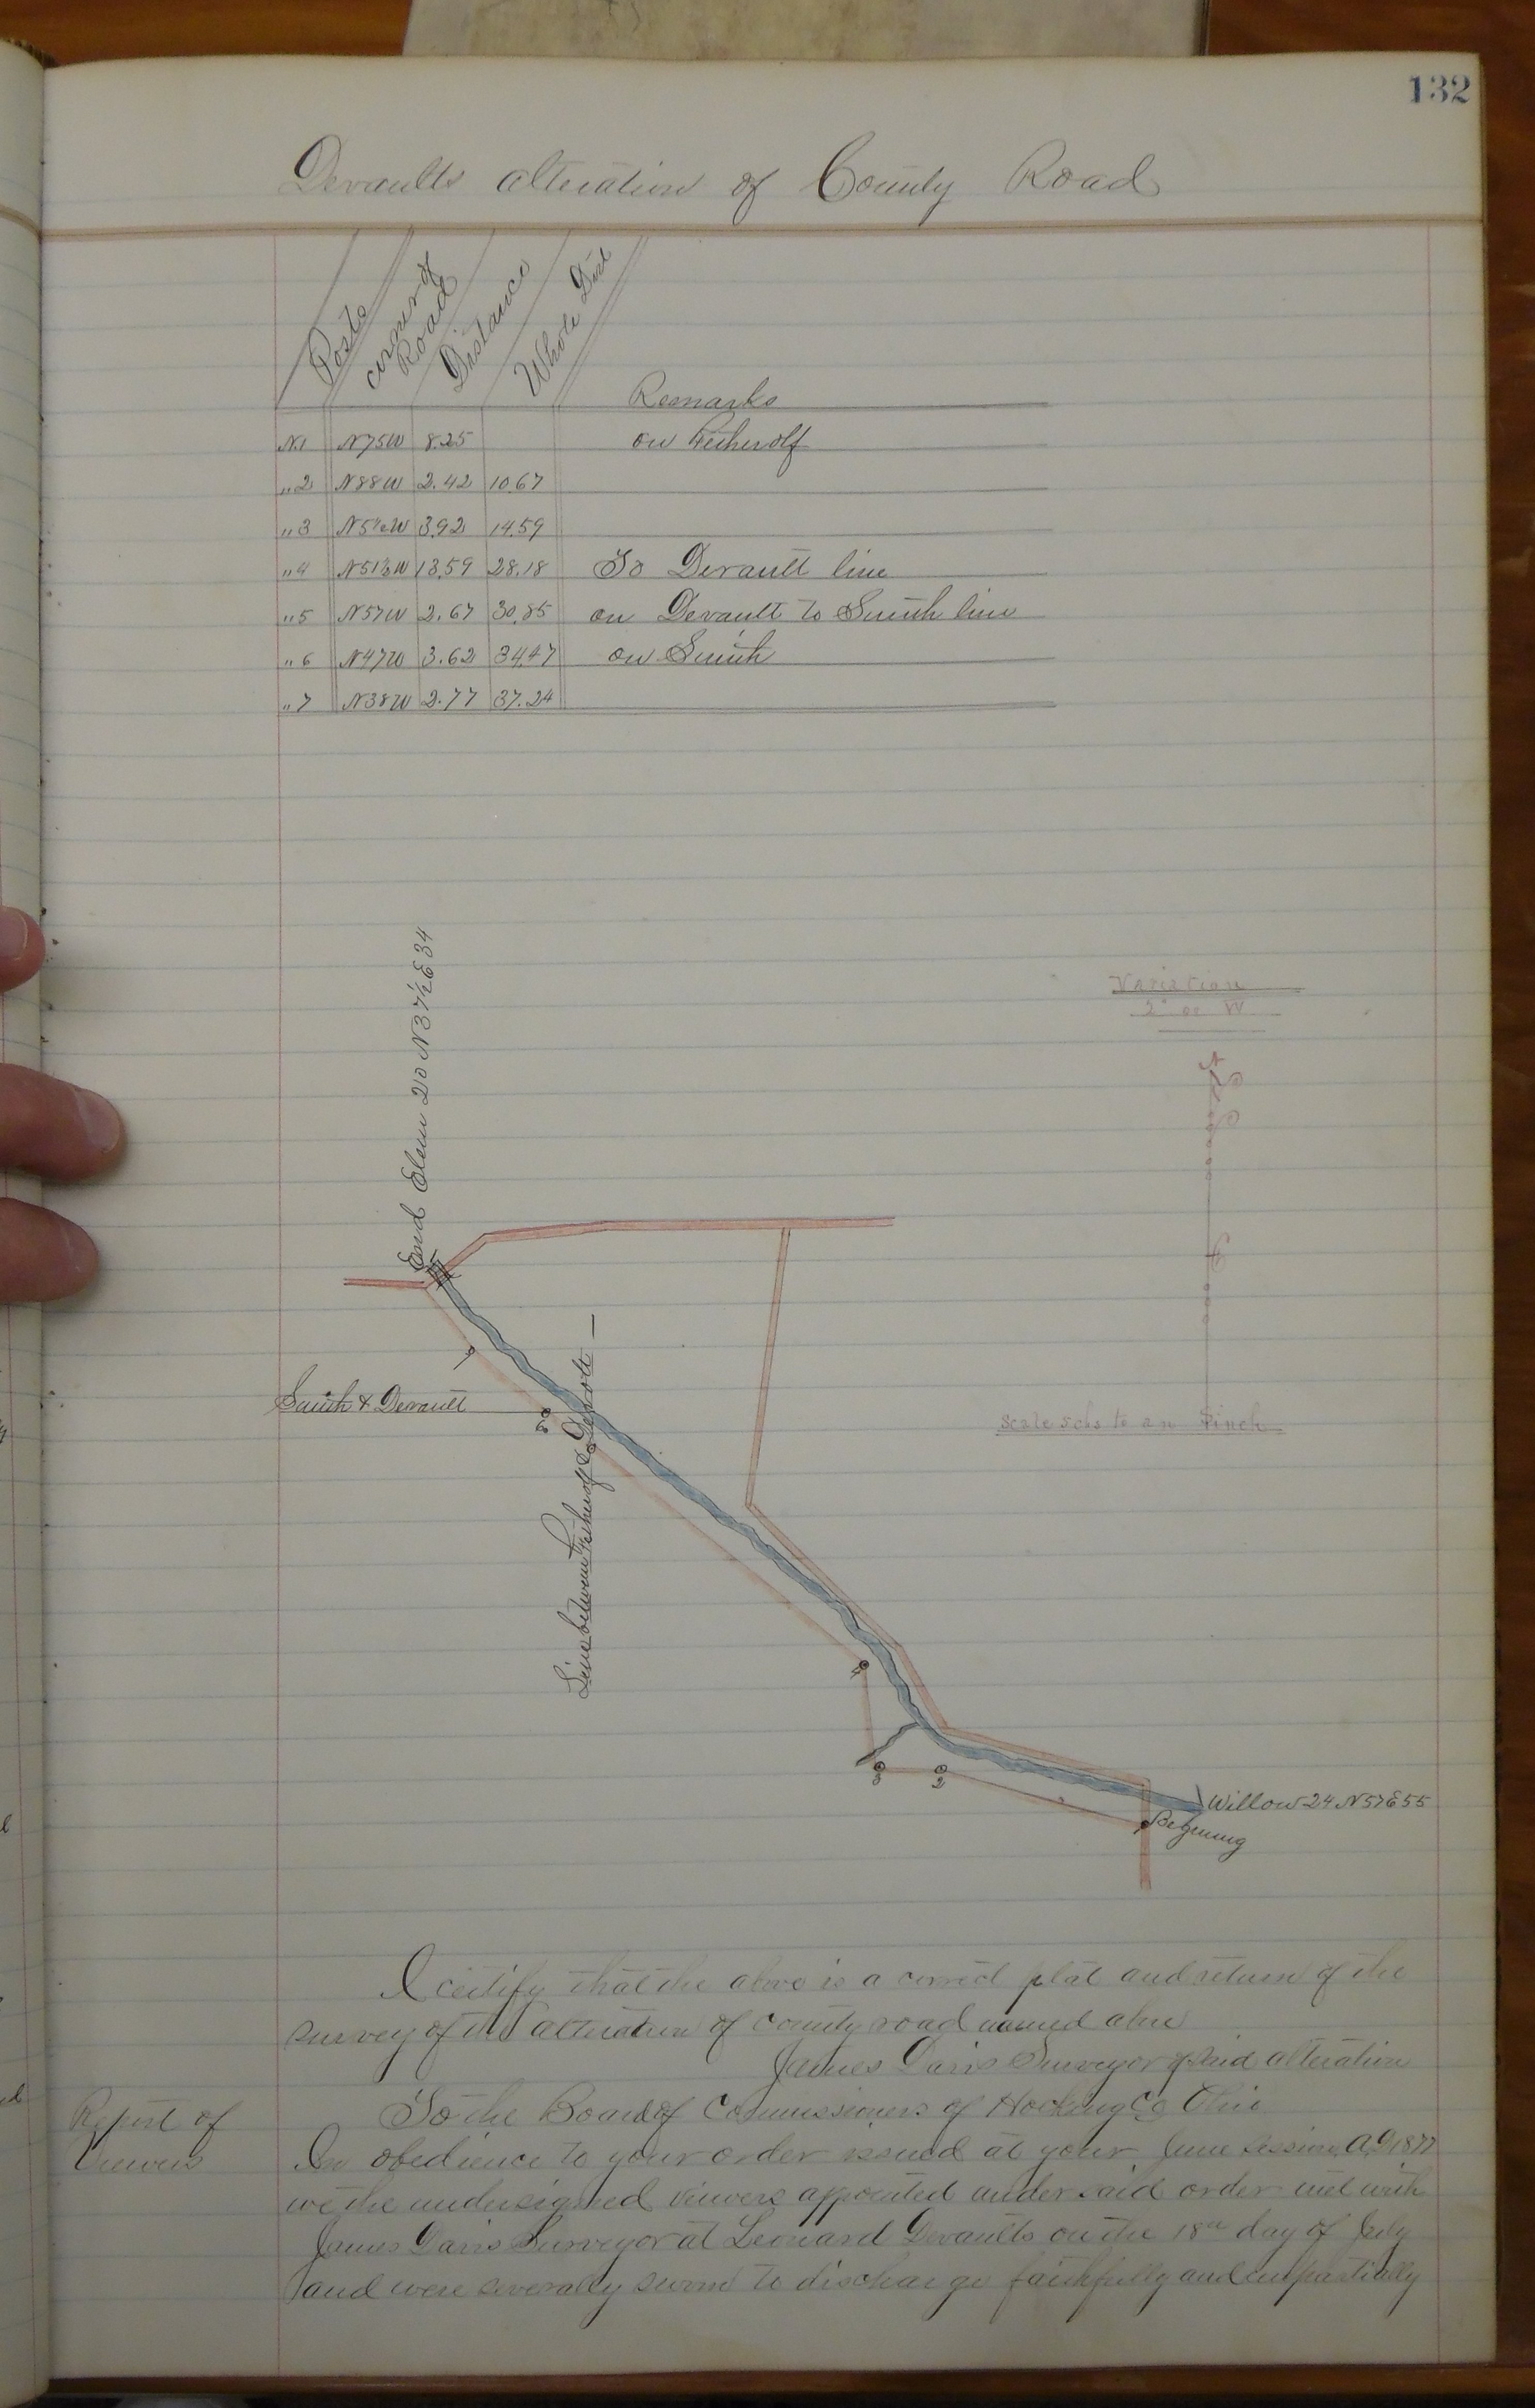 132
Devaults alteration of County Road
Posts
courses of Road
Distance
Whole Dist
Remarks
N.1 N75W 8.25 on
"2 N88W 2.42 10.67
"3 N5½W 3.92 14.59
"4 N51½W 13.59 28.18 To Devault line
"5 N57W 2.67 30.85 on Devault to Smith line
"6 N47W 3.62 34.47 on Smith
"7 N38W 2.77 37.24
End Elm 20 N37½E34
Variation
2° W
Smith & Devault
Line between & Devolt
Scale 5chs to an inch
7
6
4
3
2
Willow 24 N57E55
Begining
I certify that the above is a correct plat and return of the
survey of the alteration of county road named above
James Davis Surveyor of said alteration
Report of
Viewers
To the Board of Commissioners of Hocking Co Ohio
In obedience to your order issued at your June Session A.D 1877
we the undersigned viewers appointed under said order met with
James Davis Surveyor at Leonard Devaults on the 18th day of July
and were severally sworn to discharge faithfully and impartially